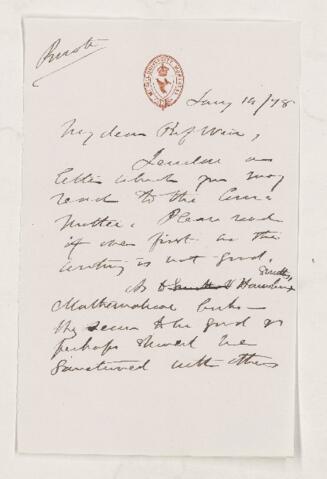 Private
McGILL UNIVERSITY MONTREAL
Jany 14/78
My dear Prof Weir,
I enclose a
letter which you may
read to the
Matter. Please read
it over first as the
writing is not good.
As to Smith's
Mathematical books
they seem to be good &
perhaps should be
sanctioned with others